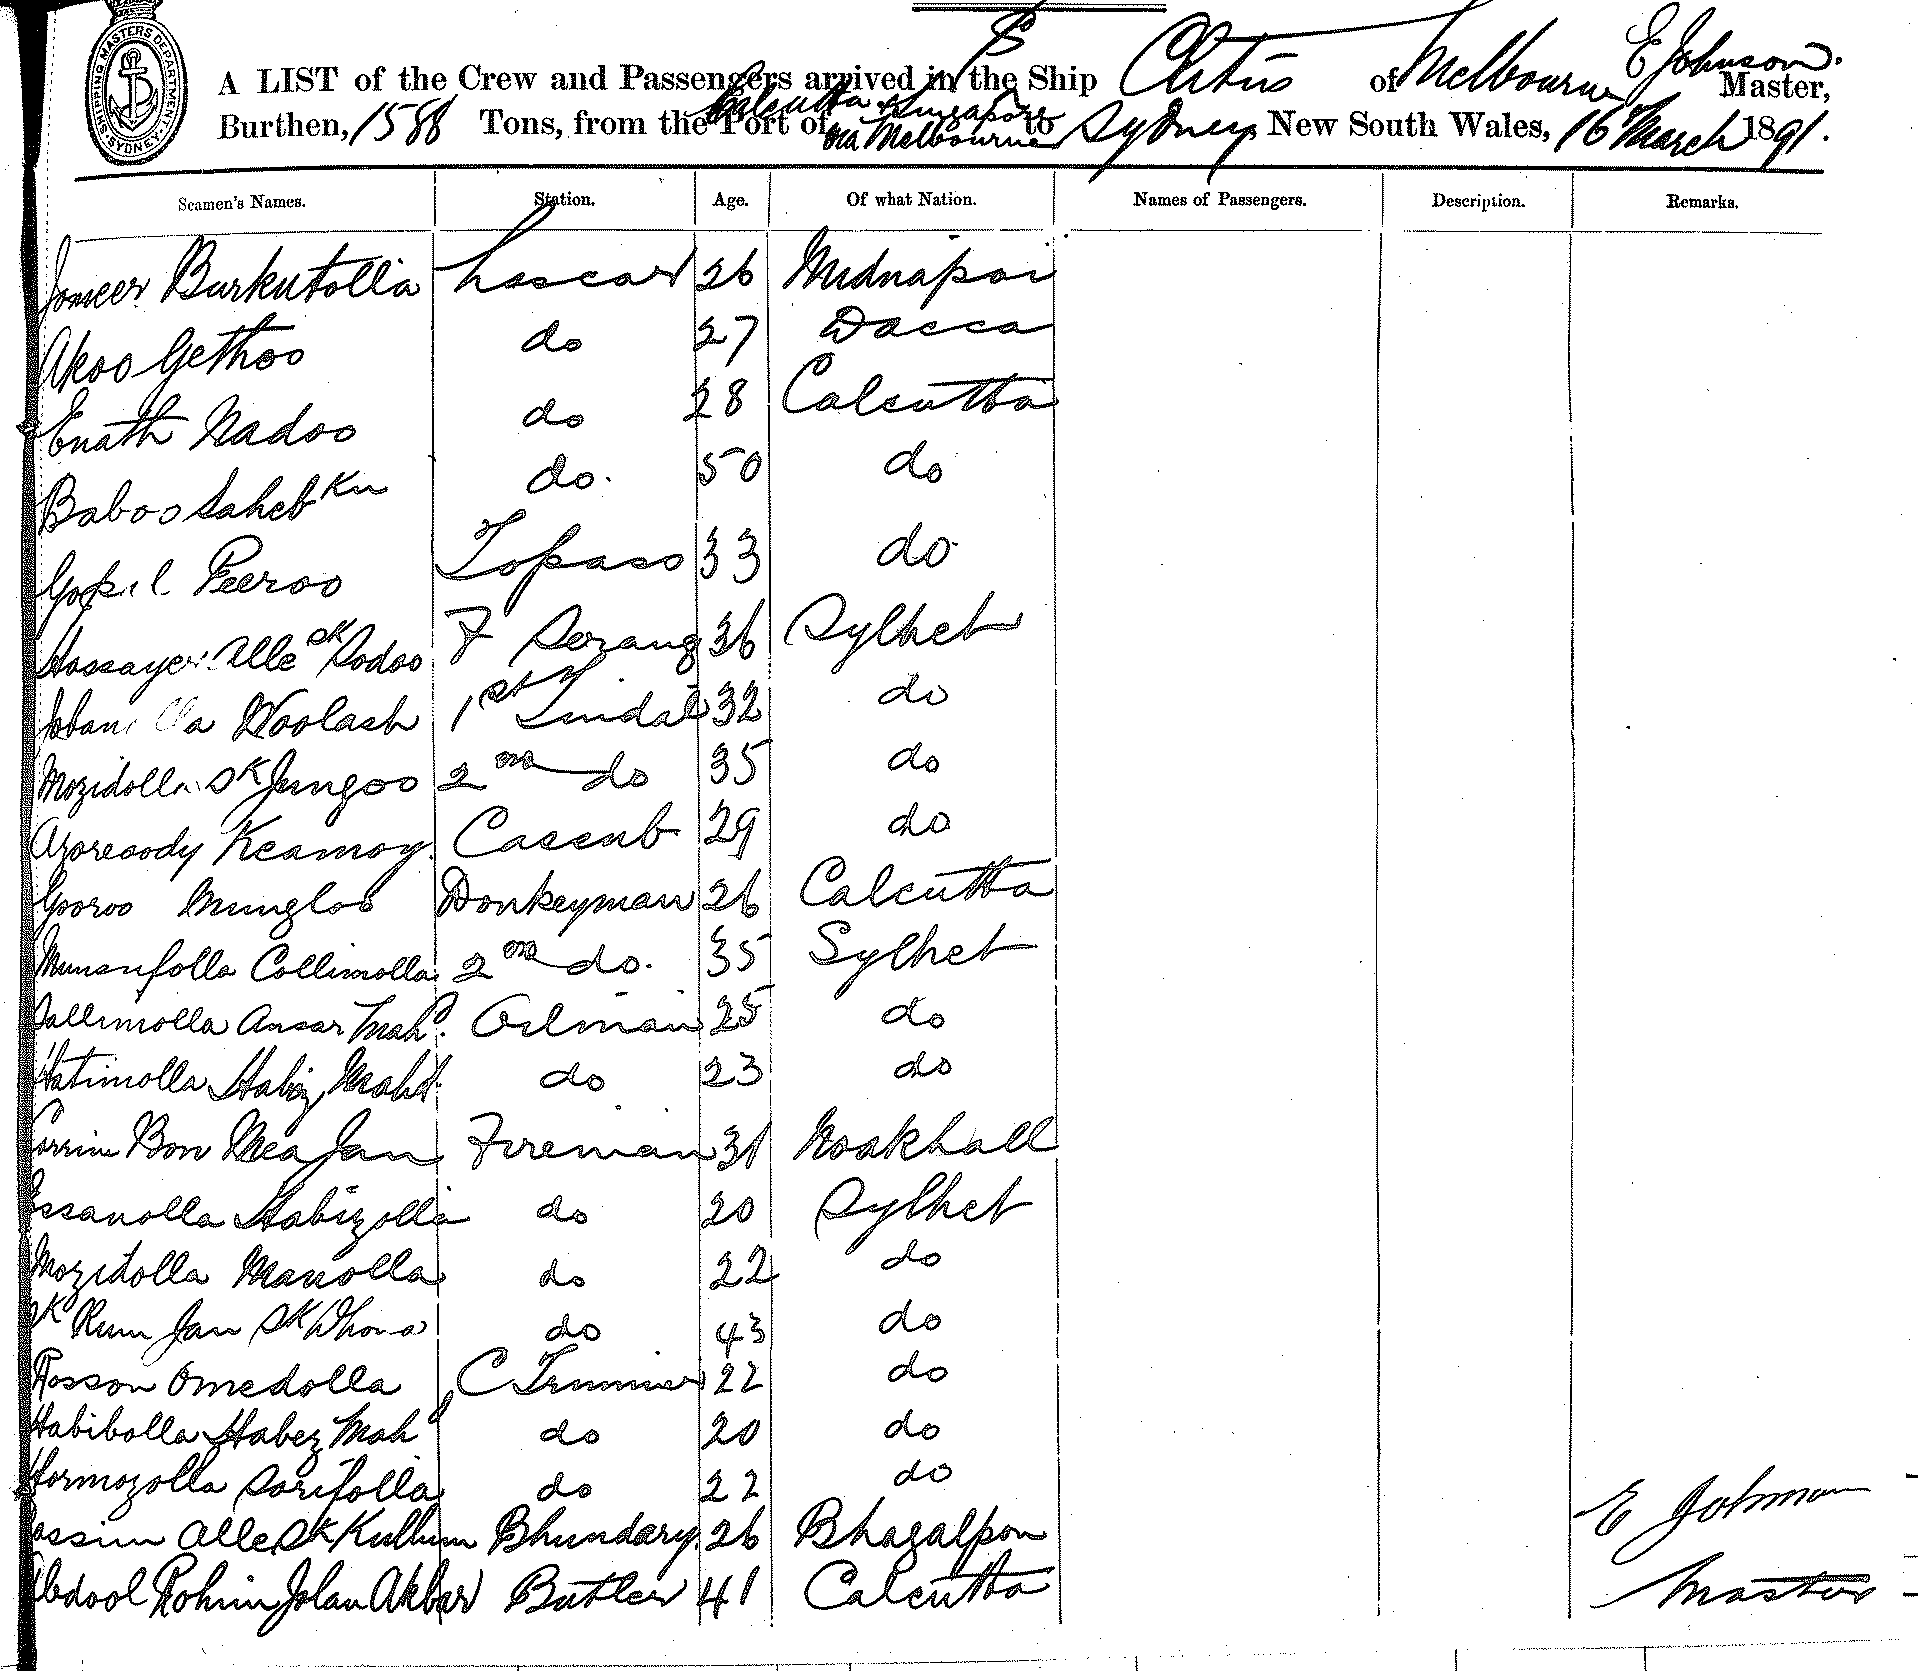 SHIPPING MASTERS DEPARTMENT SYDNEY
A LIST of the Crew and Passengers arrived in the Ship of Melbourne E Johnson. Master,
Burthen, 1588 Tons, from the Port of Calcutta & Singapore via Melbourne to Sydney New South Wales, 16 March 1891.
Seamen's Names. Station. Age. Of what Nation. Names of Passengers. Description. Remarks.
Burkutolla Lascar 26
Akoo Gethoo do 27 Dacca
Enath Nadoo do 28 Calcutta
Baboo Saheb do. 50 do
Peeroo Topass 33 do
Alle Sk Sodoo F Serang 36 Sylhet
Woolash 1st Tindal 32 do
Mozidolla Sk Jungoo 2nd do 35 do
Keamoy Cassab 29 do
Gooroo Mungloo Donkeyman 26 Calcutta
Collimolla 2nd do. 35 Sylhet
Sallimolla Ansar Mahd. Oilman 25 do
Hatimolla Habiz Mahd. do 23 do
Bon Mea Jan Fireman 31
Essanolla Habizolla do 20 Sylhet
Mozidolla Manolla do 22 do
Sk Rum Jan Sk do 43 do
Rosson Omedolla C Trimmer 22 do
Habibolla Habez Mahd do 20 do
Hormozolla Sarifolla do 22 do
Alle Sk Kullum Bhundary. 26 Bhagalpon
Abdool Rohim Jolan Akbar Butler 41 Calcutta
E Johnson
Master